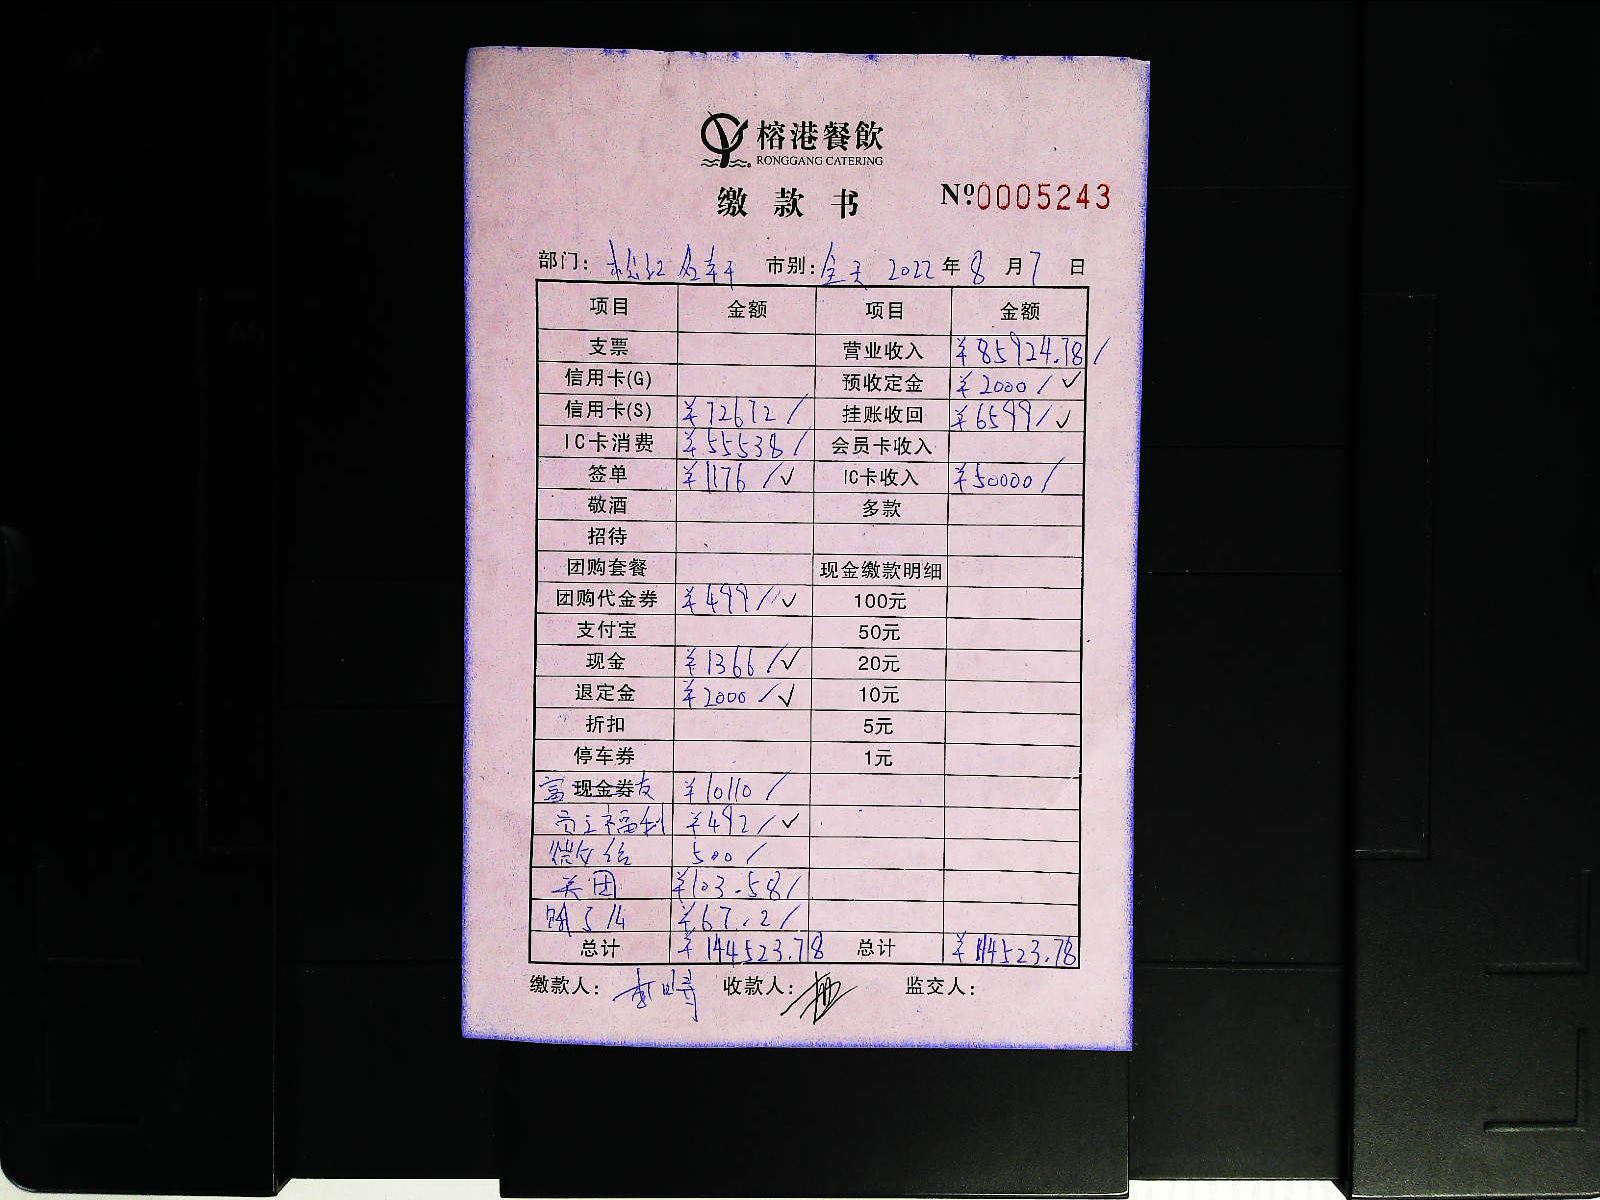 榕港餐飲
RONGGANG CATERING
缴款书 Nº:0005243
部门: 松江 市别: 全天 2022年8月7日
项目 金额 项目 金额
支票 营业收入 ¥85924.78/
信用卡(G) 预收定金 ¥2000/✓
信用卡(S) ¥72672/ 挂账收回 ¥6599/✓
IC卡消费 ¥55538/ 会员卡收入
签单 ¥1176/✓ IC卡收入 ¥50000/
敬酒 多款
招待
团购套餐 现金缴款明细
团购代金券 ¥499//✓ 100元
支付宝 50元
现金 ¥1366/✓ 20元
退定金 ¥2000/✓ 10元
折扣 5元
停车券 1元
富现金券友 ¥10110/
员工福利 ¥492/✓
500/
美团 ¥103.58/
饿了么 ¥67.2/
总计 ¥144523.78 总计 ¥144523.78
缴款人: 收款人: 监交人: